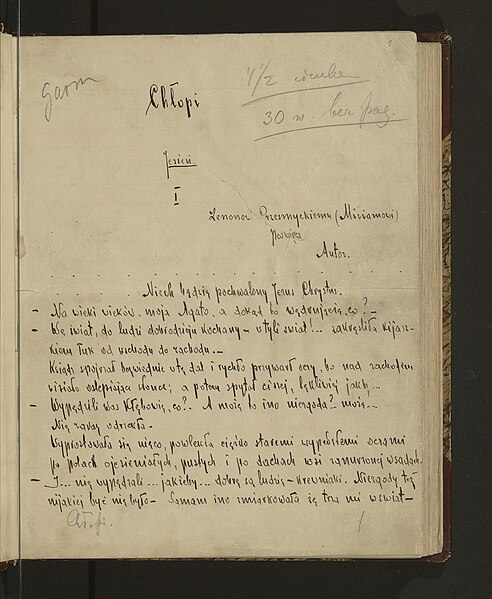 1
Garm
4 1/2
30 w. bez pag.
Chłopi
Jesień.
I
Zenonowi Przesmyckiemu (Miriamowi)
Poświęca
Autor.
Niech będzie pochwalony Jezus Chrystus.
– Na wieki wieków, moja Agato, a dokąd to wędrujecie, co? –
– We świat, do ludzi dobrodzieju kochany – w tyli świat!... zakreśliła kijasz-
kiem łuk od wschodu do zachodu. –
Ksiądz spojrzał bezwiednie w tę dal i rychło przywarł oczy, bo nad zachodem
wisiało oślepiające słońce; a potem spytał ciszej, lękliwiej jakby...
– Wypędzili was Kłębowie, co?.. A może to ino niezgoda? może...
Nie zaraz odrzekła. –
Wyprostowała się nieco, powlekła ciężko staremi wypełzłemi oczami
po polach ojesieniałych, pustych i po dachach wsi zanurzonej w sadach.
– I... nie wypędzali... jakżeby... dobre są ludzie – krewniaki. Niezgody też
nijakiej być nie było – Samam ino zmiarkowała że trza mi w świat –
Chłopi.
1